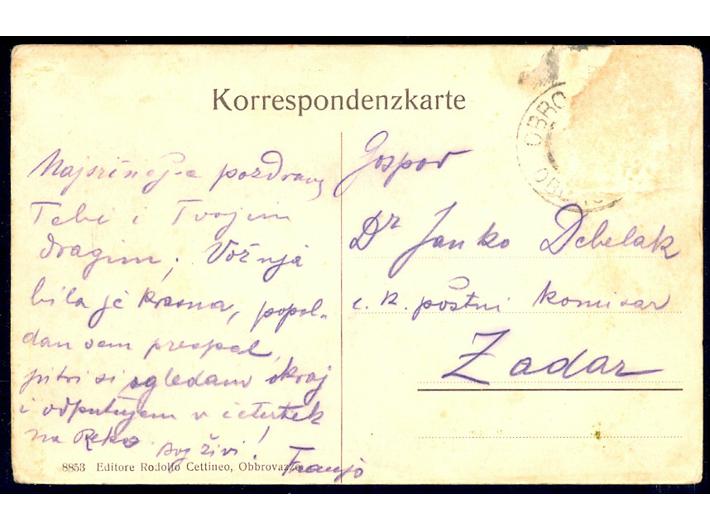 Korrespondenzkarte
OBBRO
OBROVAC
Najsrčnejše pozdrave
Tebi i Tvojim
dragim. Vožnja
bila je krasna, popol-
dan sem prespal,
jutri si ogledam okraj
i odputujem v četrtek
na Reko. živi!
Franjo
Gospod
Dr Janko Debelak
c. k. poštni komisar
Zadar
8853 Editore Rodolfo Cettineo, Obbrovazzo